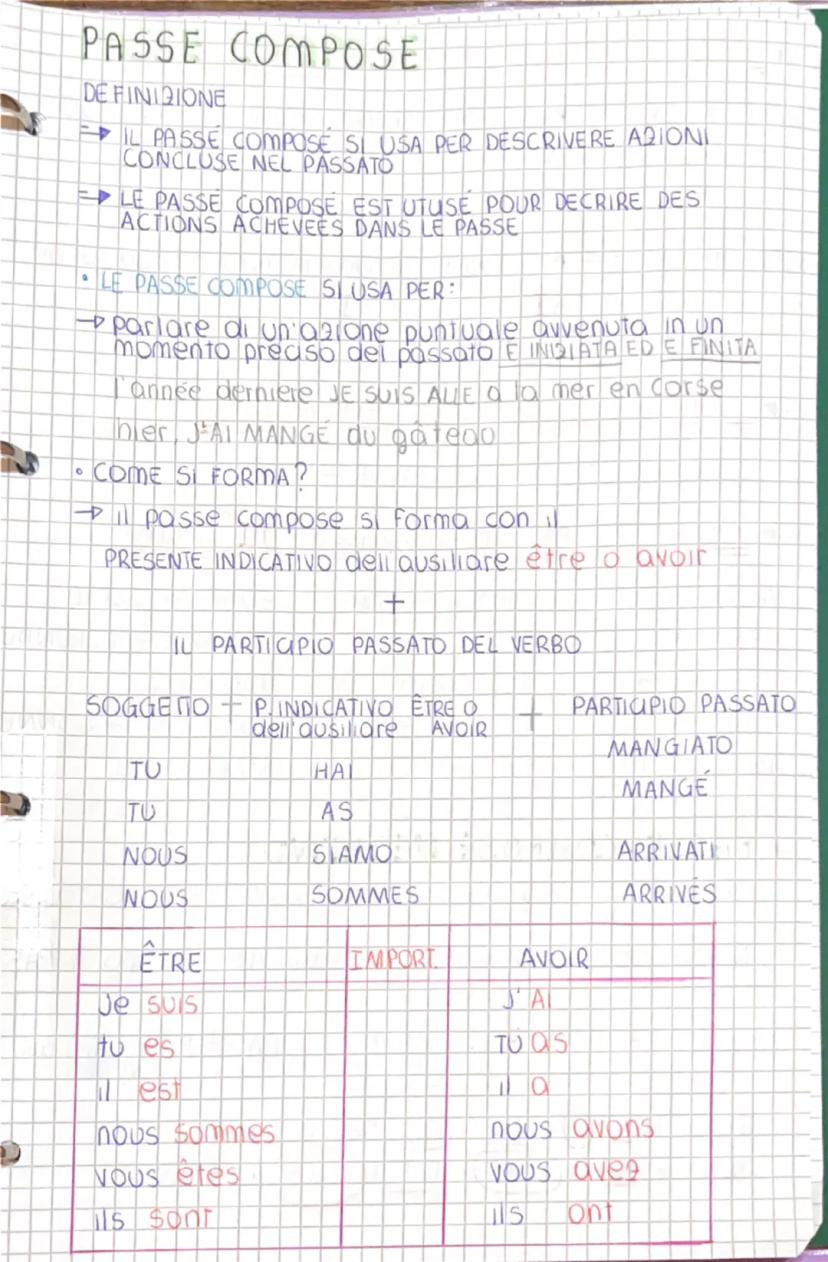 PASSE COMPOSE
DEFINIZIONE
⇒ IL PASSÉ COMPOSÉ SI USA PER DESCRIVERE AZIONI
CONCLUSE NEL PASSATO
⇒ LE PASSE COMPOSÉ EST UTUSÉ POUR DECRIRE DES
ACTIONS ACHEVEES DANS LE PASSE
• LE PASSE COMPOSE SI USA PER:
→ parlare di un'azione puntuale avvenuta in un
momento preciso del passato E INIZIATA ED E FINITA
l'année derniere JE SUIS ALLE a la mer en corse
hier, J'AI MANGÉ du gâteau
• COME SI FORMA?
→ il passe compose si forma con il
PRESENTE INDICATIVO dell'ausiliare être o avoir
+
IL PARTICIPIO PASSATO DEL VERBO
SOGGETTO + P. INDICATIVO ÊTRE O + PARTICIPIO PASSATO
dell'ausiliare AVOIR
MANGIATO
TU HAI
MANGÉ
TU AS
NOUS SIAMO ARRIVATI
NOUS SOMMES ARRIVÉS
ÊTRE IMPORT. AVOIR
Je suis J'AI
tu es TU as
il est il a
nous sommes nous avons
vous êtes vous avez
ils sont ils ont